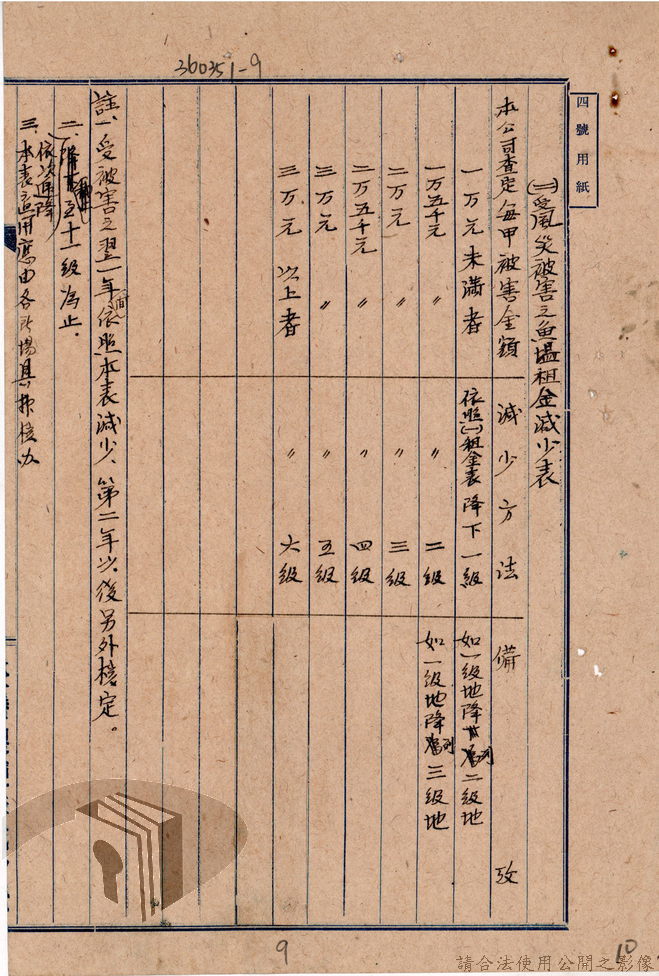 360351-9
四號用紙
(二)受風災被害之魚塭租金減少表
本公司查定每甲被害金額 減少方法 備攷
一万元未満者 依照(一)租金表降下一級 如一級地降為二級地
一万五千元〃 〃二級 如一級地降為三級地
二万元〃 〃三級
二万五千元〃 〃四級
三万元〃 〃五級
三万元以上者 〃六級
註一、受被害之翌一年間依照本表減少、第二年以後另外核定。
二、依次遞降 至十一級為止.
三、本表之适用應由各所場具報核办
9
10
請合法使用公開之影像